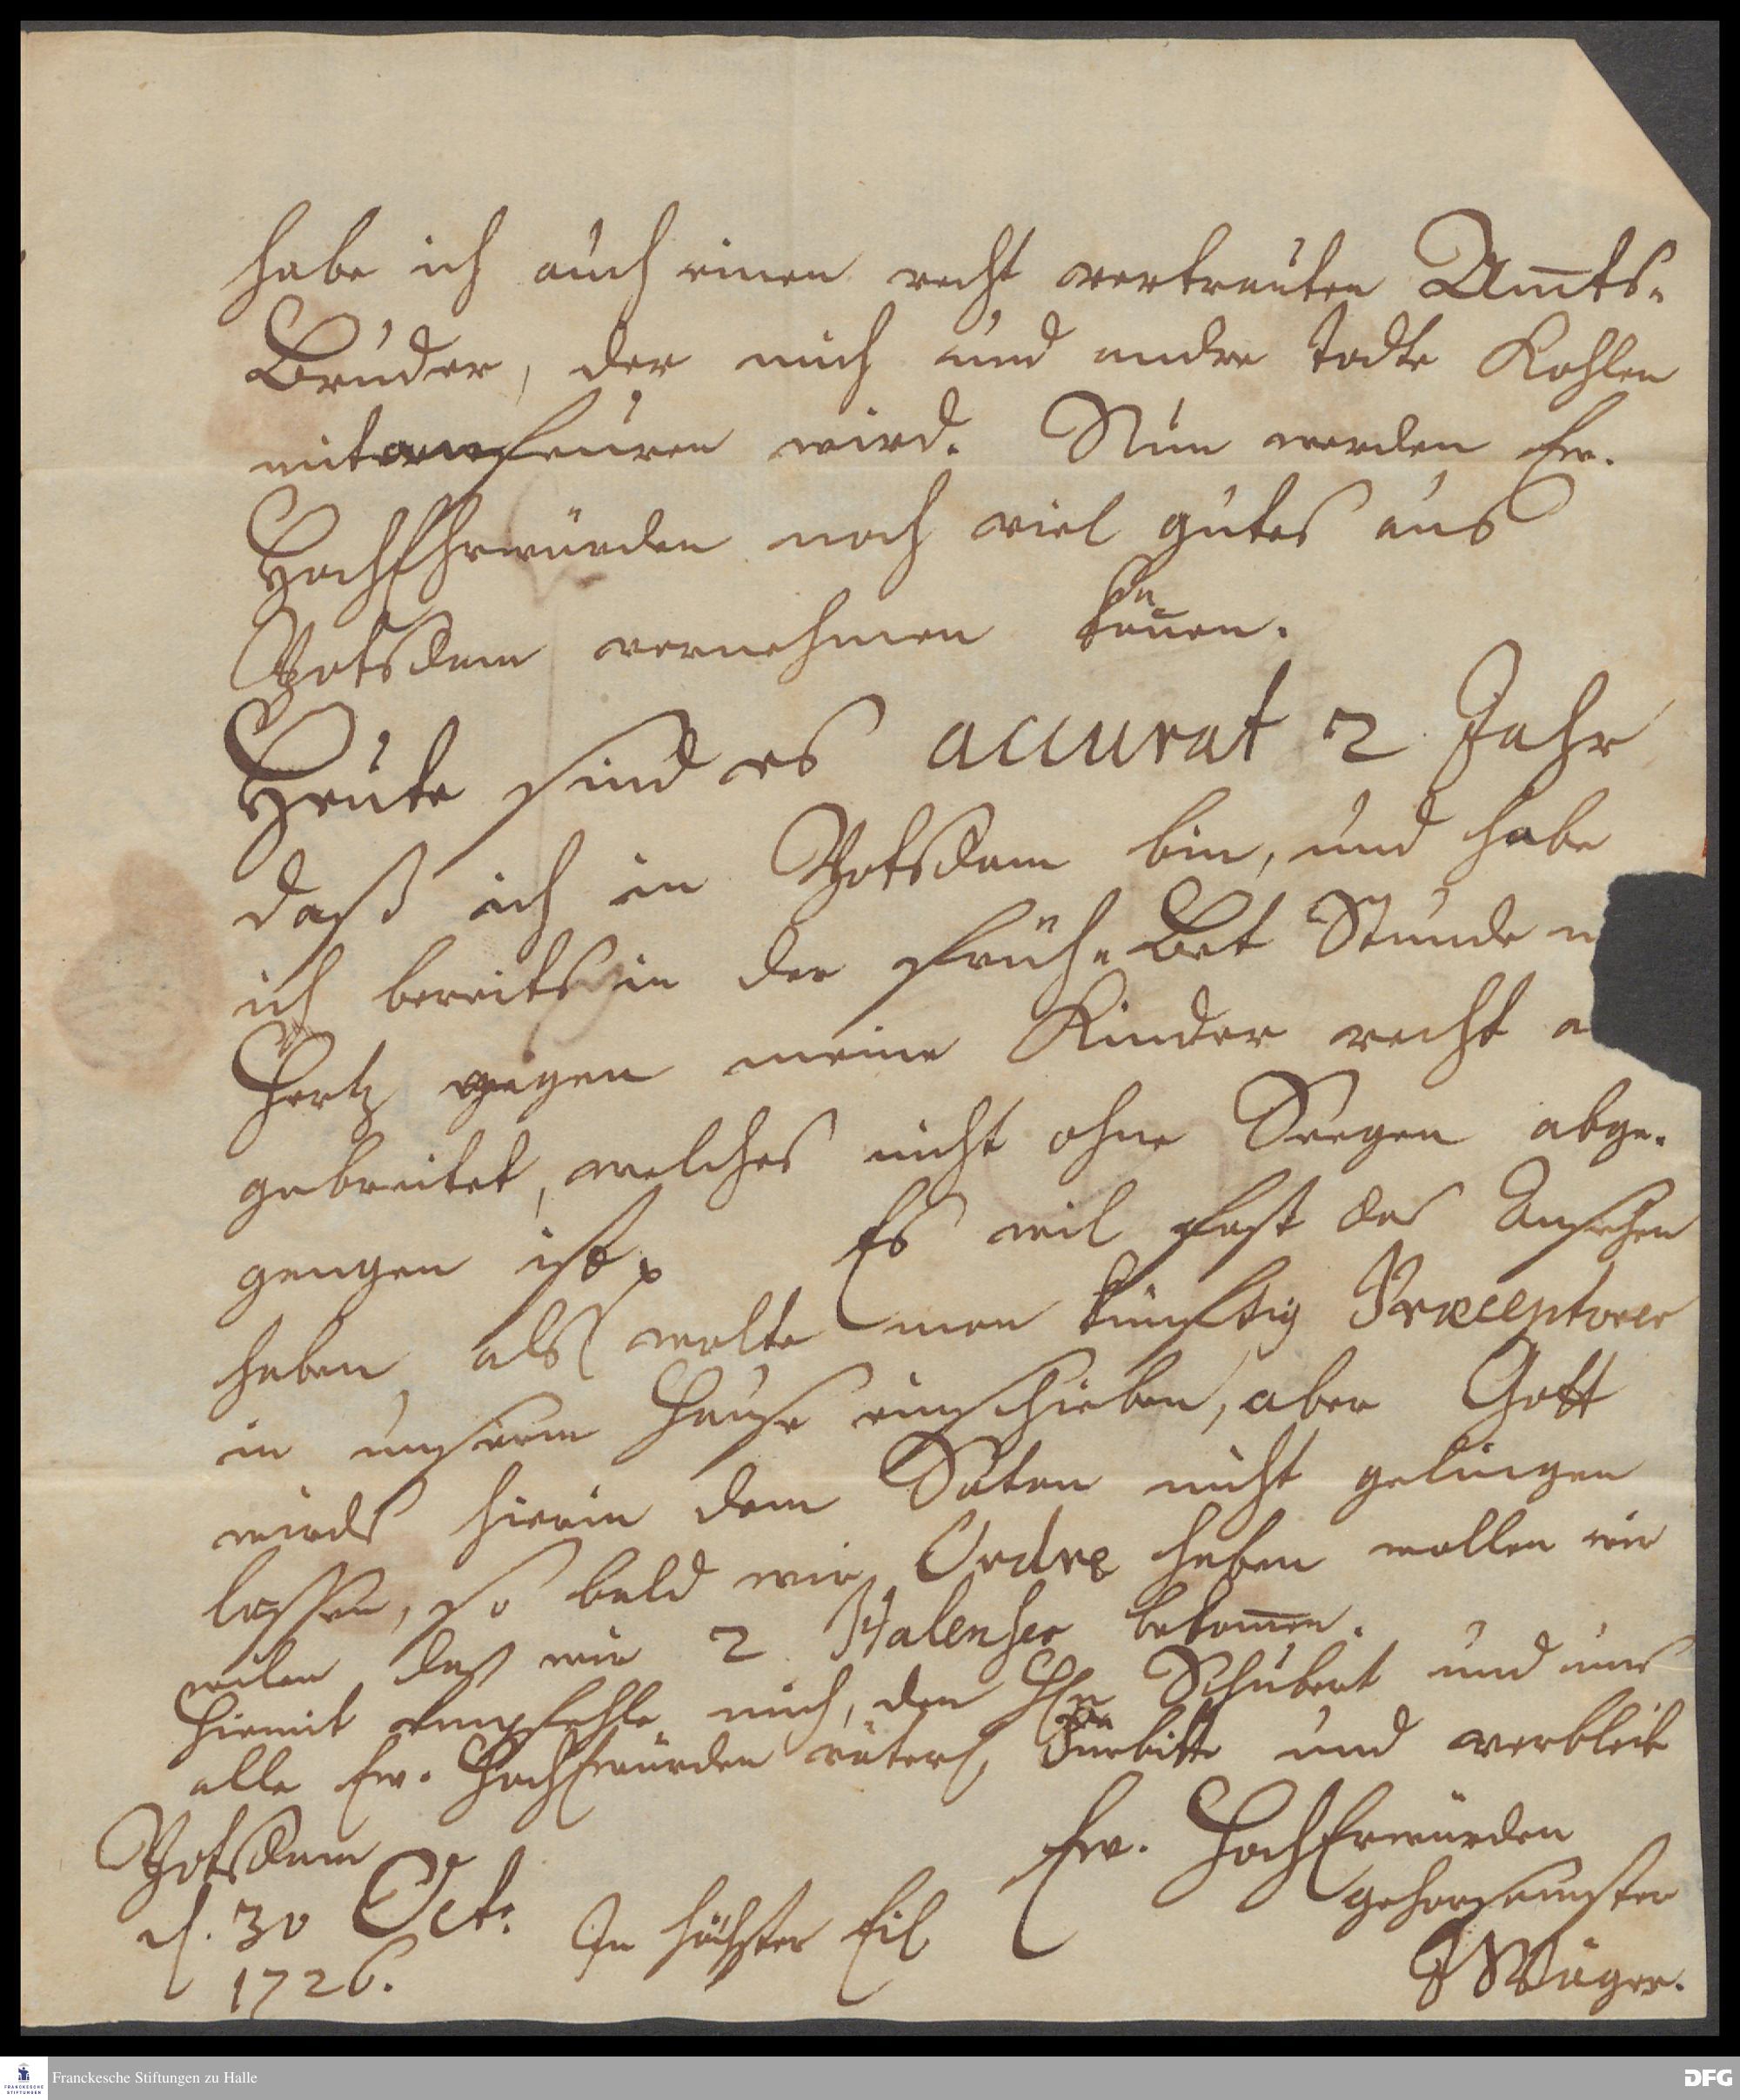 habe ich auch einen recht vertrauten Amts-
Bruder, der mich und andre todte Kohlen
mit anfeuren wird. Nun werden Ew.
HochEhrwürden noch viel gutes aus
Potsdam vernehmen können.
Heute sind es accurat 2 Jahr
daß ich in Potsdam bin, und habe
ich bereits in der Früh-Bet Stunde m
Hertz gegen meine Kinder recht a
gebreitet, welches nicht ohne Seegen abge-
gangen ist. Es wil fast das Ansehen
haben als wolte man künftig Præceptores
in unserm Hause einschieben, aber Gott
wirds hierin dem Satan nicht gelingen
lassen, so bald wir Ordre haben wollen wir
eilen daß wir 2 Halenser bekomen.
Hiemit empfehle mich, den HEn Schubert und uns
alle Ew. HochEwürden väterl. Fürbitte und verbleibe
Potsdam
d. 30 Oct.
1726.
In höchster Eil
Ew. HochEwürden
gehorsamster
Wäger.
Franckesche Stiftungen zu Halle
FRANCKESCHE STIFTUNGEN
DFG